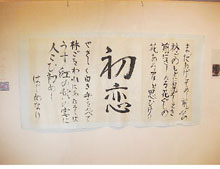 まだあげそめし前髪の
林檎のもとに見えしとき
前にさしたる花櫛の
花ある君と思ひけり
初恋
やさしく白き手をのべて
林檎をわれにあたへしは
うす紅の秋の実に
人こひ初めし
はじめなり